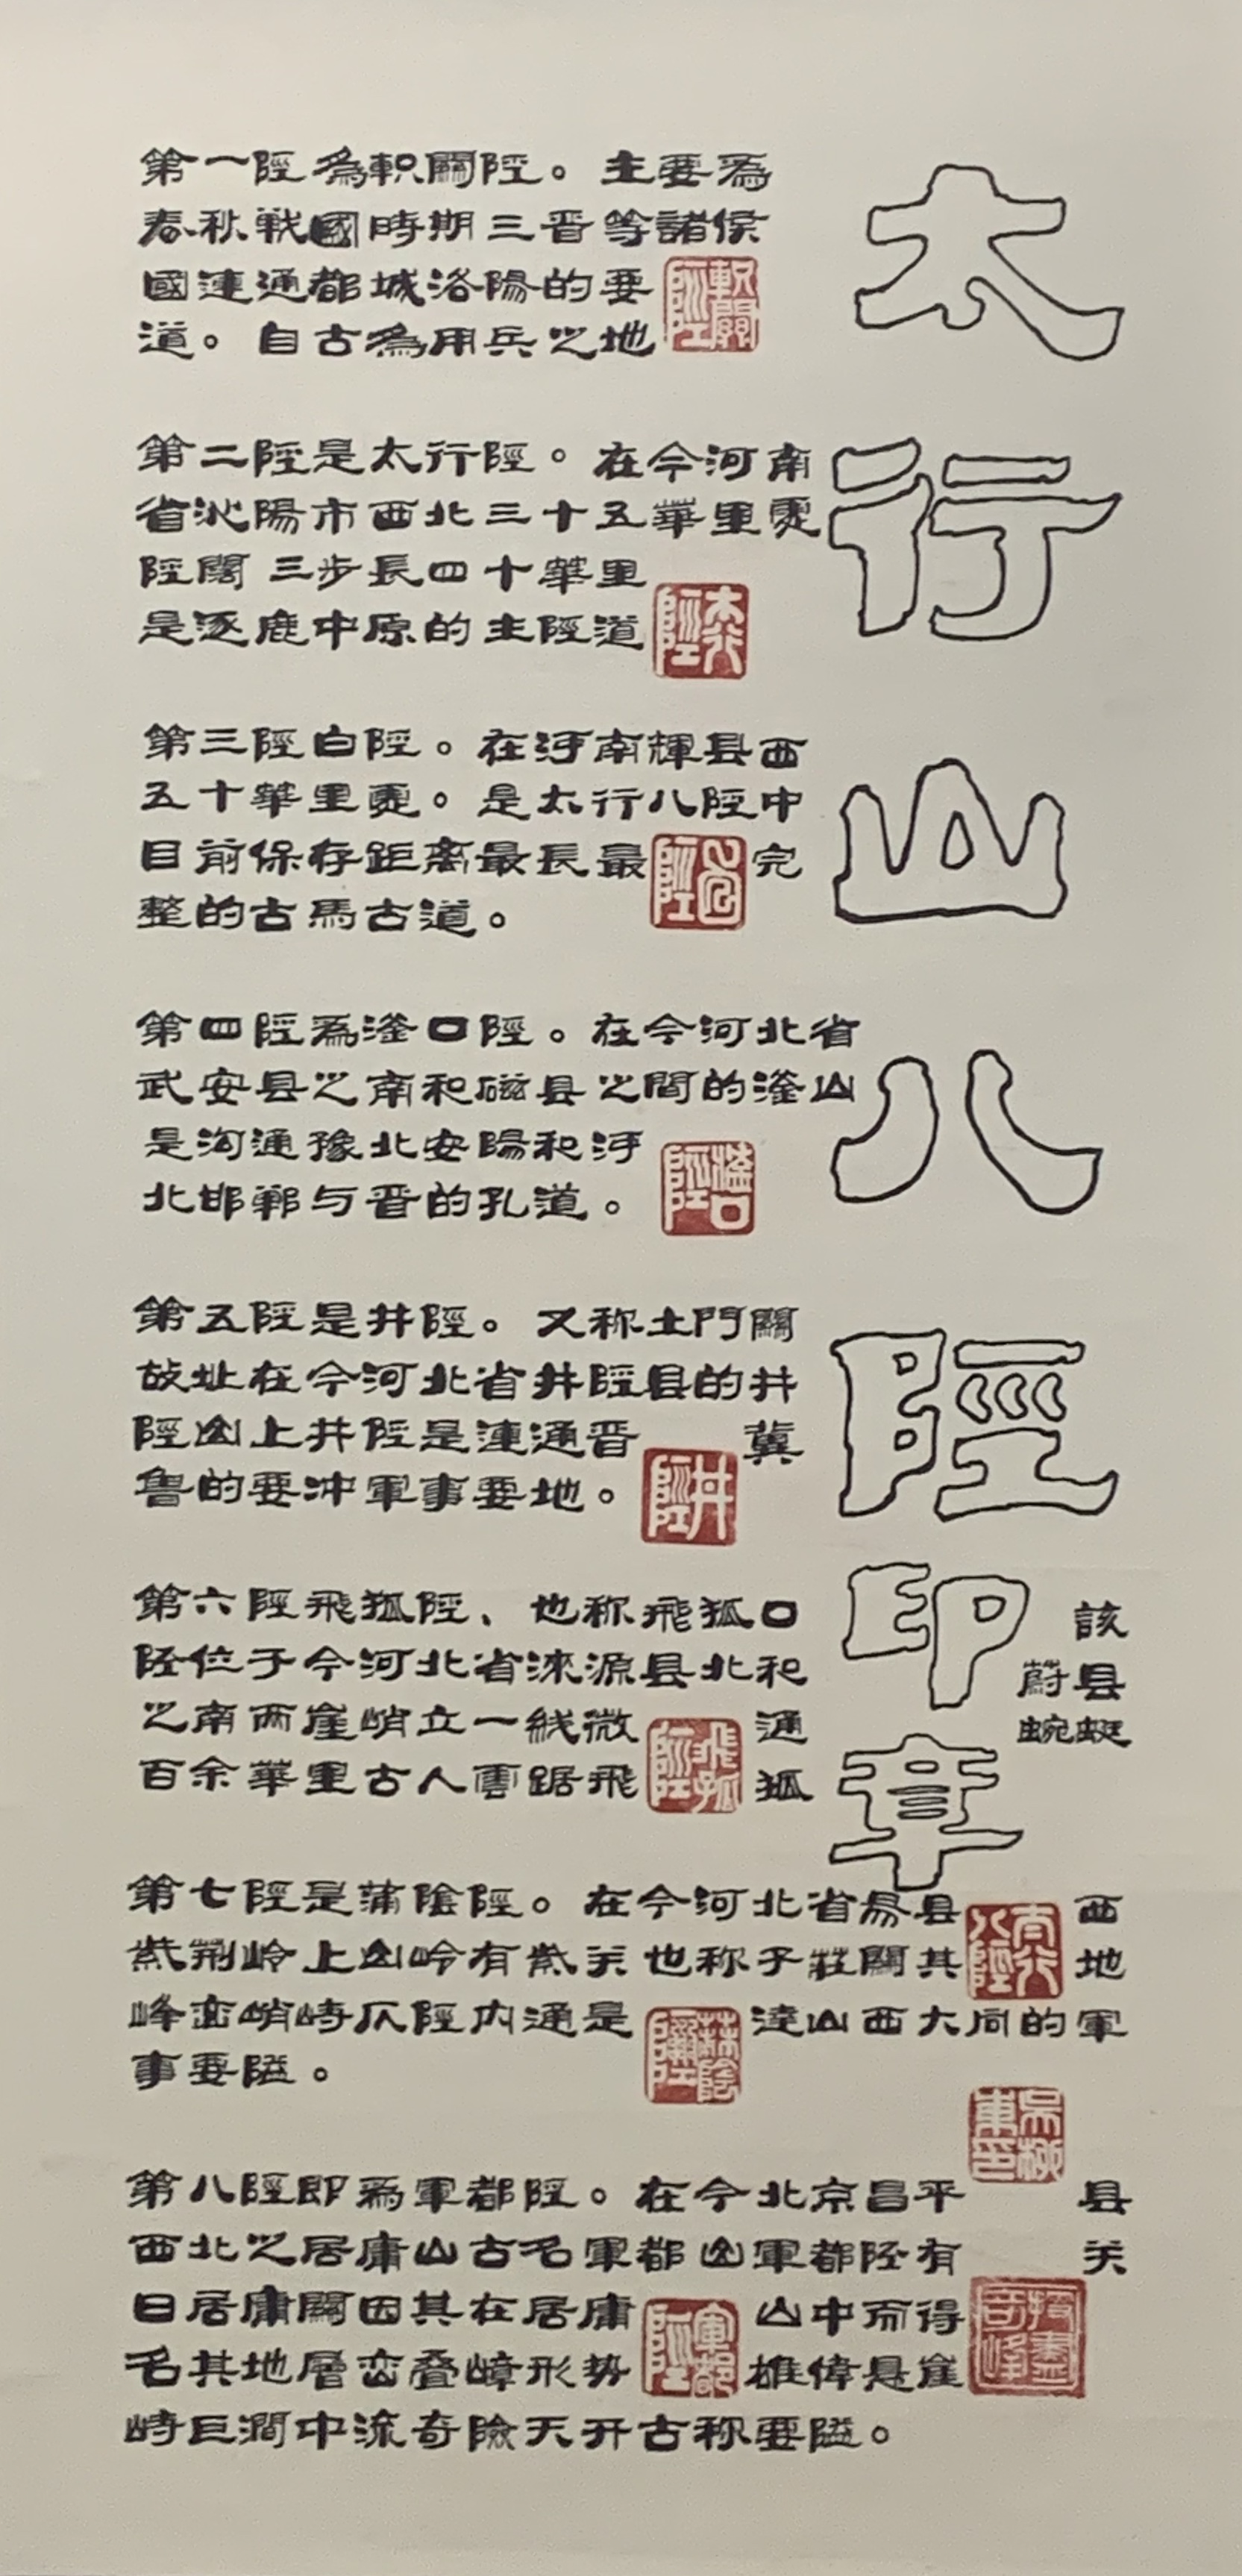 太行山八陘印章
第一陘為軹關陘。主要為
春秋戰國時期三晋等諸侯
國連通都城洛陽的要
道。自古為用兵之地
軹關陘
第二陘是太行陘。在今河南
省沁陽市西北三十五華里處
陘闊三步長四十華里
是逐鹿中原的主陘道
太行陘
第三陘白陘。在河南輝县西
五十華里處。是太行八陘中
目前保存距离最長最完
整的古馬古道。
白陘
第四陘為滏口陘。在今河北省
武安县之南和磁县之間的滏山
是沟通豫北安陽和河
北邯鄲与晋的孔道。
滏口陘
第五陘是井陘。又称土門關
故址在今河北省井陘县的井
陘山上井陘是連通晋冀
魯的要冲軍事要地。
井陘
第六陘飛狐陘、也称飛狐口
該
陘位于今河北省淶源县北和蔚县
之南两崖峭立一线微通蜿蜒
百余華里古人雲踞飛狐
飛狐陘
第七陘是蒲陰陘。在今河北省易县西
紫荆岭上山岭有紫关也称子莊關其地
峰峦峭峙仄陘内通是達山西大同的軍
事要隘。
太行八陘
第八陘即為軍都陘。在今北京昌平县
西北之居庸山古名軍都山軍都陘有关
曰居庸關因其在居庸山中而得
名其地層峦叠嶂形势雄偉悬崖
峙巨澗中流奇險天开古称要隘。
軍都陘